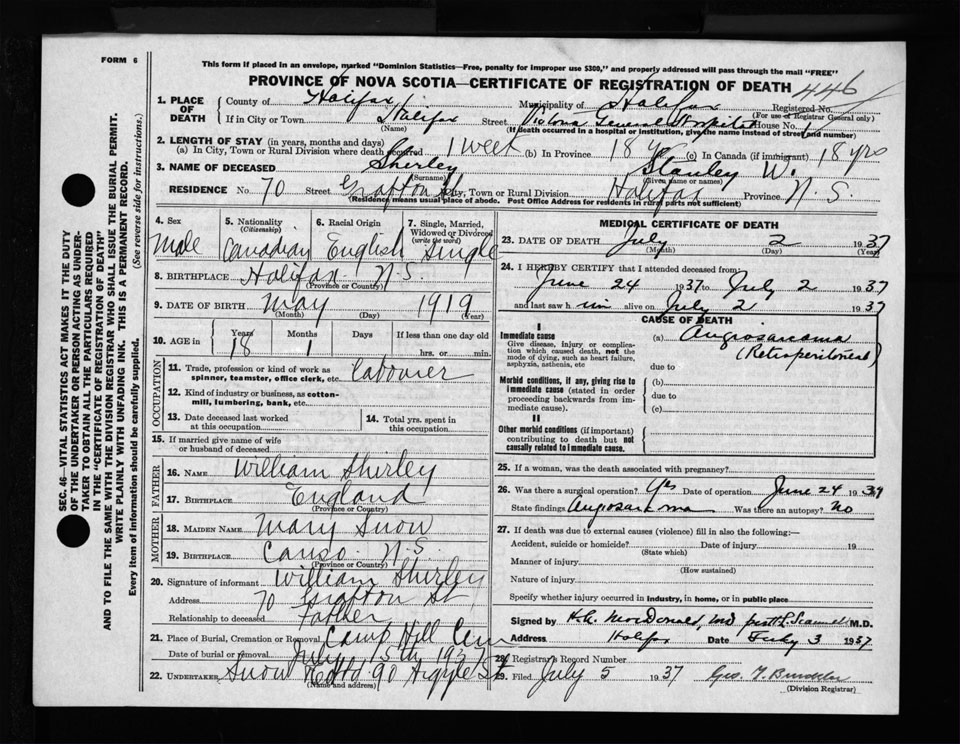 FORM 6
This form if placed in an envelope, marked "Dominion Statistics—Free, penalty for improper use $300," and properly addressed will pass through the mail "FREE"
PROVINCE OF NOVA SCOTIA—CERTIFICATE OF REGISTRATION OF DEATH 446
1. PLACE OF DEATH County of Halifax Municipality of Halifax Registered No.
(For use of Registrar General only)
If in City or Town Halifax Street Victoria General Hospital House No.
(Name) (If death occurred in a hospital or institution, give the name instead of street and number)
2. LENGTH OF STAY (in years, months and days)
(a) In City, Town or Rural Division where death occurred 1 week (b) In Province 18 yrs (c) In Canada (if immigrant) 18 yrs
3. NAME OF DECEASED Shirley Stanley W.
(Surname) (Given name or names)
RESIDENCE No. 70 Street Grafton St City, Town or Rural Division Halifax Province N.S.
(Residence means usual place of abode. Post Office Address for residents in rural parts not sufficient)
SEC. 46—VITAL STATISTICS ACT MAKES IT THE DUTY
OF THE UNDERTAKER OR PERSON ACTING AS UNDER-
TAKER TO OBTAIN ALL THE PARTICULARS REQUIRED
IN THE "CERTIFICATE OF REGISTRATION OF DEATH"
AND TO FILE THE SAME WITH THE DIVISION REGISTRAR WHO SHALL ISSUE THE BURIAL PERMIT.
WRITE PLAINLY WITH UNFADING INK. THIS IS A PERMANENT RECORD.
Every item of information should be carefully supplied. (See reverse side for instructions.)
4. Sex 5. Nationality 6. Racial Origin 7. Single, Married,
(Citizenship) Widowed or Divorced
(write the word)
Male Canadian English Single
8. BIRTHPLACE Halifax N.S.
(Province or Country)
9. DATE OF BIRTH May 1919
(Month) (Day) (Year)
10. AGE in Years Months Days If less than one day old
18 1 hrs. or min.
OCCUPATION
11. Trade, profession or kind of work as
spinner, teamster, office clerk, etc. Labourer
12. Kind of industry or business, as cotton-
mill, lumbering, bank, etc.
13. Date deceased last worked
at this occupation
14. Total yrs. spent in
this occupation
15. If married give name of wife
or husband of deceased
FATHER
16. NAME William Shirley
17. BIRTHPLACE England
(Province or Country)
MOTHER
18. MAIDEN NAME Mary Snow
19. BIRTHPLACE Canso N.S.
(Province or Country)
20. Signature of informant William Shirley
Address 70 Grafton St,
Relationship to deceased Father
21. Place of Burial, Cremation or Removal Camp Hill Cem
Date of burial or removal July 5th 1937
22. UNDERTAKER Snow 90 Argyle St
(Name and address)
MEDICAL CERTIFICATE OF DEATH
23. DATE OF DEATH July 2 1937
(Month) (Day) (Year)
24. I HEREBY CERTIFY that I attended deceased from:
June 24 1937 to July 2 1937
and last saw him alive on July 2 1937
CAUSE OF DEATH
I
Immediate cause
Give disease, injury or complica-
tion which caused death, not the
mode of dying, such as heart failure,
asphyxia, asthenia, etc
(a) Angiosarcoma
(Retroperitoneal)
due to
Morbid conditions, if any, giving rise to
immediate cause (stated in order
proceeding backwards from im-
mediate cause).
(b)
due to
(c)
II
Other morbid conditions (if important)
contributing to death but not
causally related to immediate cause.
25. If a woman, was the death associated with pregnancy?
26. Was there a surgical operation? Yes Date of operation June 24 1937
State findings Angiosarcoma Was there an autopsy? No
27. If death was due to external causes (violence) fill in also the following:
Accident, suicide or homicide? Date of injury 19
(State which)
Manner of injury
(How sustained)
Nature of injury
Specify whether injury occurred in industry, in home, or in public place
Signed by H.K. MacDonald, M.D.
Address Halifax Date July 3 1937
28. Registrar's Record Number
29. Filed July 5 1937 Geo.
(Division Registrar)